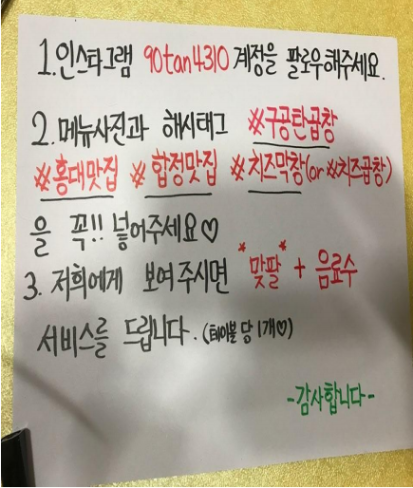 1. 인스타그램 90tan4310 계정을 팔로우해주세요.
2. 메뉴사진과 해시태그 #구공탄곱창
#홍대맛집 #합정맛집 #치즈막창(or #치즈곱창)
을 꼭!! 넣어주세요♡
3. 저희에게 보여주시면 *맞팔* + 음료수
서비스를 드립니다. (테이블 당 1개♡)
-감사합니다-